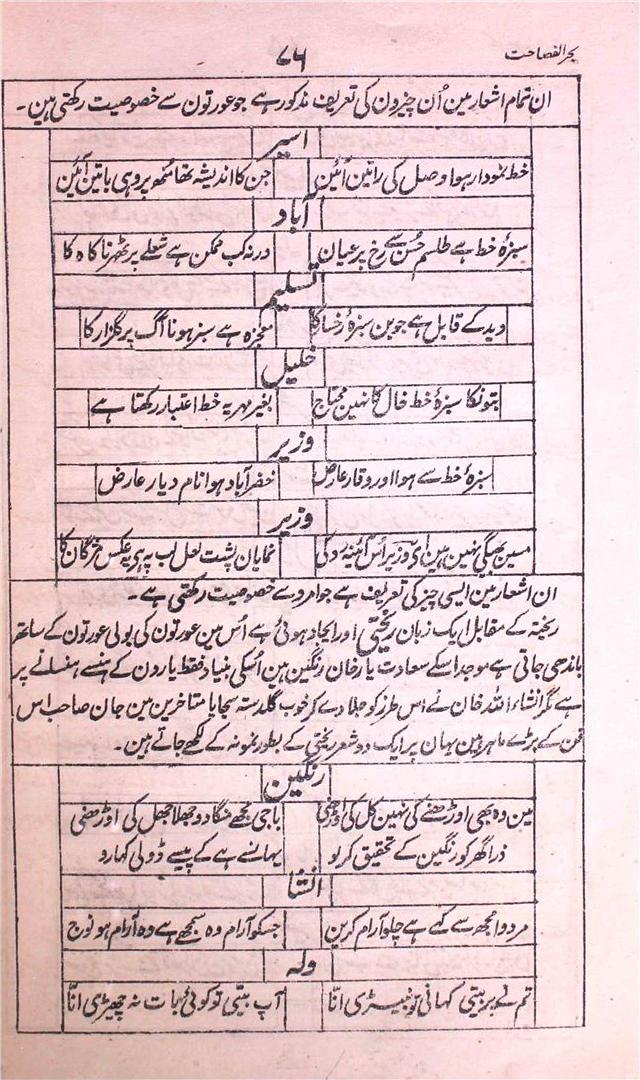 بحر الفصاحت
۷۶
ان تمام اشعار مین اُن چیزون کی تعریف مذکور ہے جو عورتون سے خصوصیت رکھتی ہین۔
اسیر
خط نمودار ہوا وصل کی راتین آئین جن کا اندیشہ تھا مُنھ پر وہی باتین آئین
آباد
سبزۂ خط ہے طلسم حُسن سے رخ پر عیان ورنہ کب ممکن ہے شعلے پر ٹھہرنا کاہ کا
تسلیم
دید کے قابل ہے جوبن سبزۂ رخسار کا معجزہ ہے سبز ہونا آگ پر گلزار کا
خلیل
بتونکا سبزۂ خط خال کا نہین محتاج بغیر مہر یہ خط اعتبار رکھتا ہے
وزیر
سبزۂ خط سے ہوا اور وقار عارض خضر آباد ہوا نام دیار عارض
وزیر
مسین بھیگی نہین ہین اے وزیر اُس آئینہ رو کی نمایان پشت لعل لب پہ ہے عکس مژگان کا
ان اشعار مین ایسی چیز کی تعریف ہے جو امرد سے خصوصیت رکھتی ہے۔
ریختہ کے مقابل ایک زبان ریختی اور ایجاد ہوئی ہے اُس مین عورتون کی بولی عورتون کے ساتھ
باندھی جاتی ہے موجد اسکے سعادت یار خان رنگین ہین اُسکی بنیاد فقط یارون کے ہنسنے ہنسانے پر
ہے مگر انشاء اللہ خان نے اس طرز کو جلا دے کر خوب گلدستہ سجایا متاخرین مین جان صاحب اس
فن کے بڑے ماہر ہین یہان پر ایک دو شعر ریختی کے بطور نمونہ کے لکھے جاتے ہین۔
رنگین
مین وہ بھی اوڑھنے کی نہین کل کی اوڑھنی باجی مجھے منگا دو جھلا جھل کی اوڑھنی
ذرا گھر کو رنگین کے تحقیق کر لو یہانسے ہے کے پیسے ڈولی کہارو
انشا
مردوا مجھ سے کہے ہے چلو آرام کرین جسکو آرام وہ سمجھے ہے وہ آرام ہو نوج
ولہ
تم نے پر بیتی کہانی تو نبیڑی انّا آپ بیتی تو کوئی بات نہ چھیڑی انّا